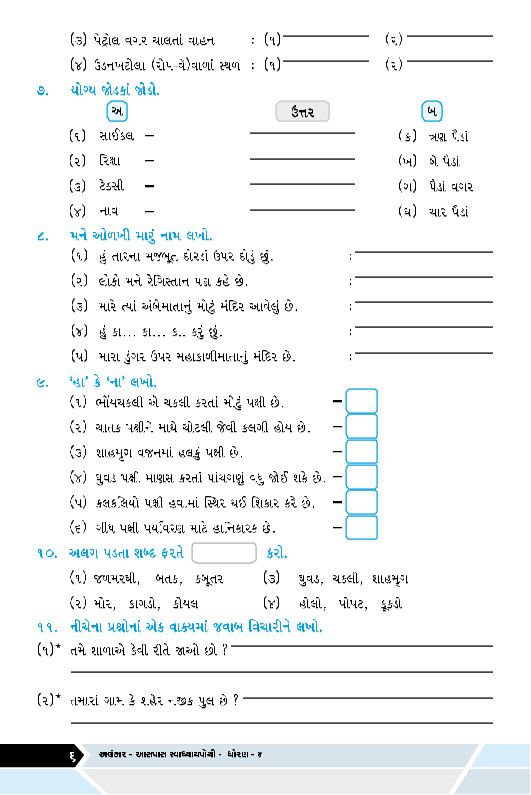 (૩) પેટ્રોલ વગર ચાલતાં વાહન : (૧) (૨)
(૪) ઉડનખટોલા (રોપ-વે)વાળાં સ્થળ : (૧) (૨)
૭. યોગ્ય જોડકાં જોડો.
અ ઉત્તર બ
(૧) સાઈકલ – (ક) ત્રણ પૈડાં
(૨) રિક્ષા – (ખ) બે પૈડાં
(૩) ટેક્સી – (ગ) પૈડાં વગર
(૪) નાવ – (ઘ) ચાર પૈડાં
૮. મને ઓળખી મારું નામ લખો.
(૧) હું તારના મજબૂત દોરડાં ઉપર દોડું છું. :
(૨) લોકો મને રેગિસ્તાન પણ કહે છે. :
(૩) મારે ત્યાં અંબેમાતાનું મોટું મંદિર આવેલું છે. :
(૪) હું કા... કા... ક.. કરું છું. :
(૫) મારા ડુંગર ઉપર મહાકાળીમાતાનું મંદિર છે. :
૯. ‘હા’ કે ‘ના’ લખો.
(૧) ભોંયચકલી એ ચકલી કરતાં મોટું પક્ષી છે. –
(૨) ચાતક પક્ષીને માથે ચોટલી જેવી કલગી હોય છે. –
(૩) શાહમૃગ વજનમાં હલકું પક્ષી છે. –
(૪) ઘુવડ પક્ષી માણસ કરતાં પાંચગણું વધુ જોઈ શકે છે. –
(૫) કલકલિયો પક્ષી હવામાં સ્થિર થઈ શિકાર કરે છે. –
(૬) ગીધ પક્ષી પર્યાવરણ માટે હાનિકારક છે. –
૧૦. અલગ પડતા શબ્દ ફરતે કરો.
(૧) જળમરઘી, બતક, કબૂતર (૩) ઘુવડ, ચકલી, શાહમૃગ
(૨) મોર, કાગડો, કોયલ (૪) હોલો, પોપટ, કૂકડો
૧૧. નીચેના પ્રશ્નોનાં એક વાક્યમાં જવાબ વિચારીને લખો.
(૧)* તમે શાળાએ કેવી રીતે જાઓ છો ?
(૨)* તમારાં ગામ કે શહેર નજીક પુલ છે ?
૬ અલંકાર - આસપાસ સ્વાધ્યાયપોથી - ધોરણ - ૪